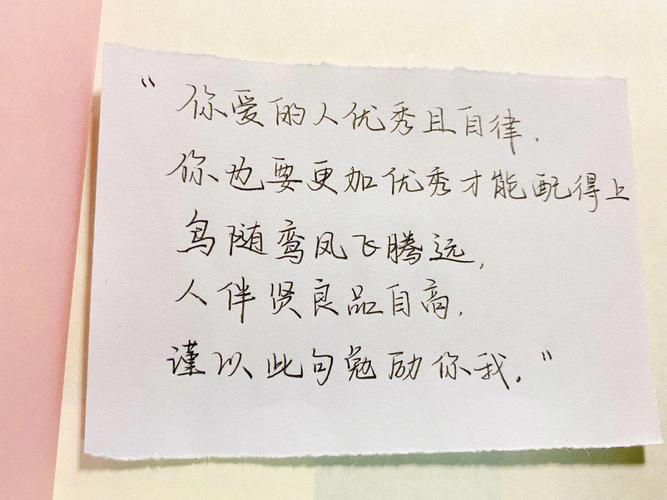 “你爱的人优秀且自律.
你也要更加优秀才能配得上
鸟随鸾凤飞腾远,
人伴贤良品自高.
谨以此句勉励你我.”